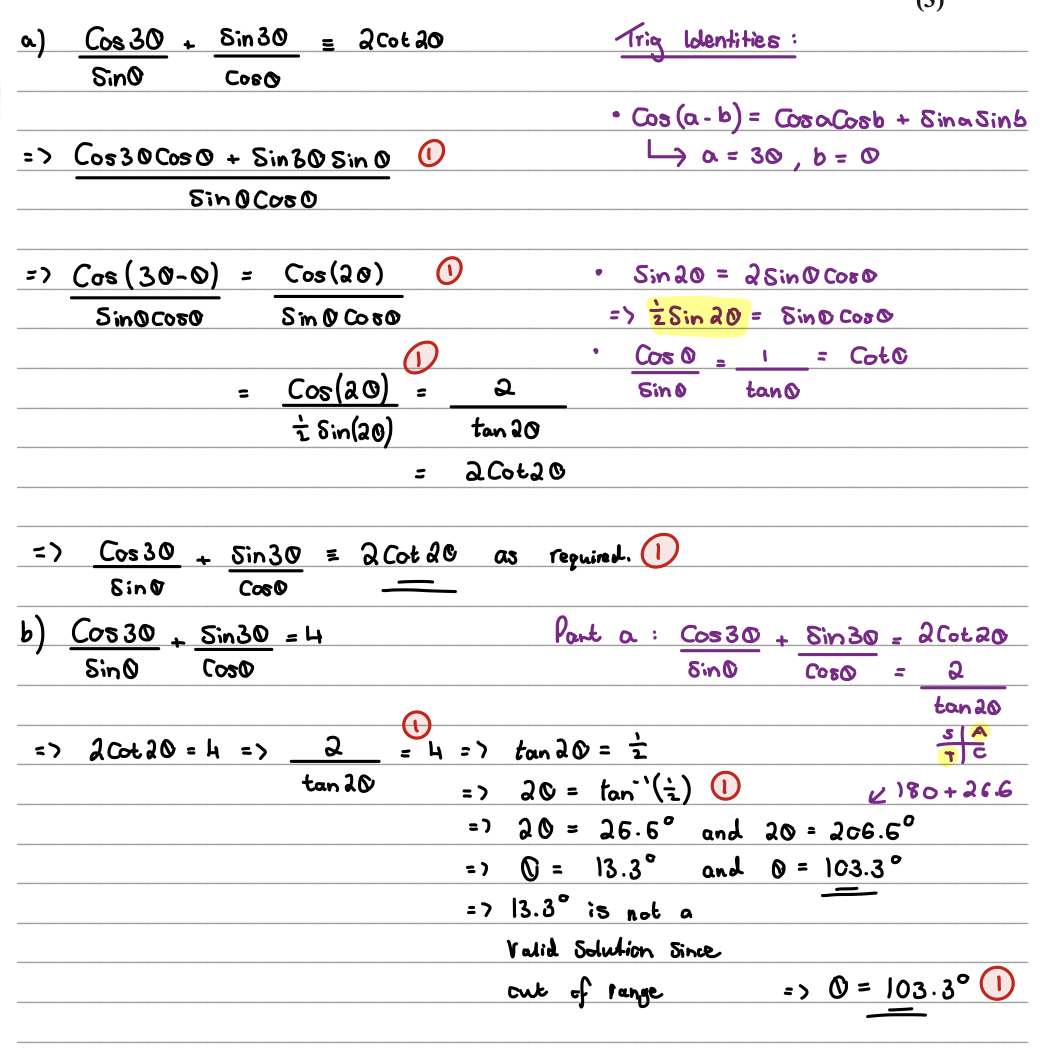 (3)
a) Cos3θ/Sinθ + Sin3θ/Cosθ ≡ 2Cot2θ
Trig Identities :
• Cos(a - b) = CosaCosb + SinaSinb
↳ a = 3θ , b = θ
=> Cos3θCosθ + Sin3θSinθ / SinθCosθ ①
=> Cos(3θ-θ)/SinθCosθ = Cos(2θ)/SinθCosθ ①
• Sin2θ = 2SinθCosθ
=> ½Sin2θ = SinθCosθ
• Cosθ/Sinθ = 1/tanθ = Cotθ
= Cos(2θ)/½Sin(2θ) ① = 2/tan2θ
= 2Cot2θ
=> Cos3θ/Sinθ + Sin3θ/Cosθ ≡ 2Cot2θ as required. ①
b) Cos3θ/Sinθ + Sin3θ/Cosθ = 4
Part a : Cos3θ/Sinθ + Sin3θ/Cosθ = 2Cot2θ
= 2/tan2θ
=> 2Cot2θ = 4 => 2/tan2θ = 4 ① => tan2θ = ½
S A
T C
=> 2θ = tan⁻¹(½) ①
↙ 180+26.6
=> 2θ = 26.6° and 2θ = 206.6°
=> θ = 13.3° and θ = 103.3°
=> 13.3° is not a
Valid Solution Since
out of range => θ = 103.3° ①